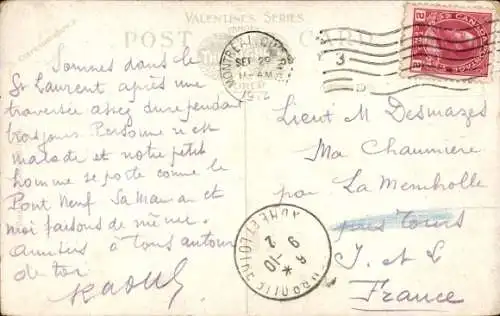 VALENTINE'S SERIES
POST CARD
Correspondence
MONTREAL, QUE.
SEP 29
11-AM
3
CANADA
Sommes dans le
St Laurent après une
traversée assez dure pendant
trois jours. Personne n'est
malade et notre petit
homme se porte comme le
Pont Neuf Sa Maman et
moi faisons de même.
Amitiés à tous autour
de toi
Raoul
Lieut M Desmazes
Ma Chaumière
par La Membrolle
près Tours
I. et L.
France
INDRE ET LOIRE
6 -10